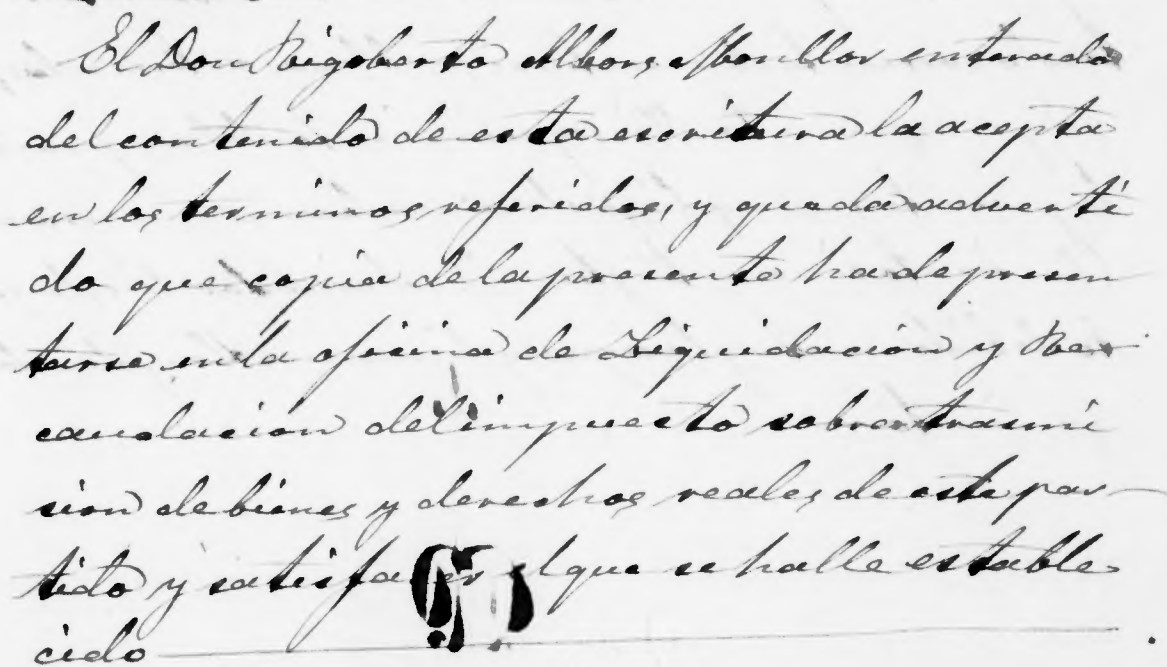 El Don Rigoberto Albors Monllor enterado
del contenido de esta escritura la acepta
en los terminos referidos, y queda adverti
do que copia de la presente ha de presen
tarse en la oficina de Liquidación y Re-
caudacion del impuesto sobre trasmi
sion de bienes y derechos reales de este par-
tido y satisfacer el que se halle estable-
cido